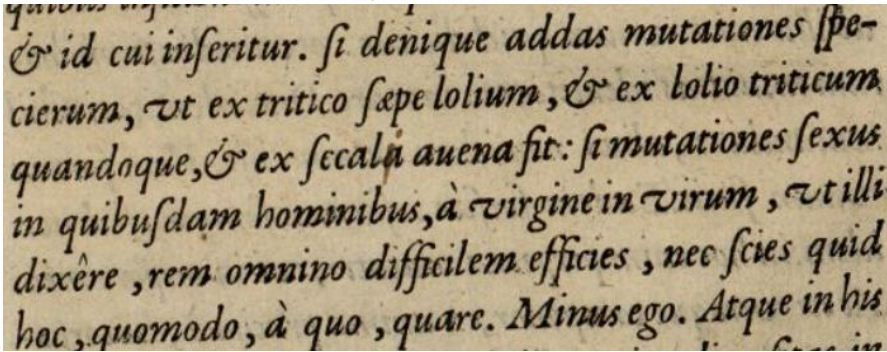 & id cui inſeritur. ſi denique addas mutationes ſpe-
cierum, vt ex tritico ſæpe lolium, & ex lolio triticum
quandoque, & ex ſecala auena fit: ſi mutationes ſexus
in quibuſdam hominibus, à virgine in virum, vt illi
dixêre, rem omnino difficilem efficies, nec ſcies quid
hoc, quomodo, à quo, quare. Minus ego. Atque in his